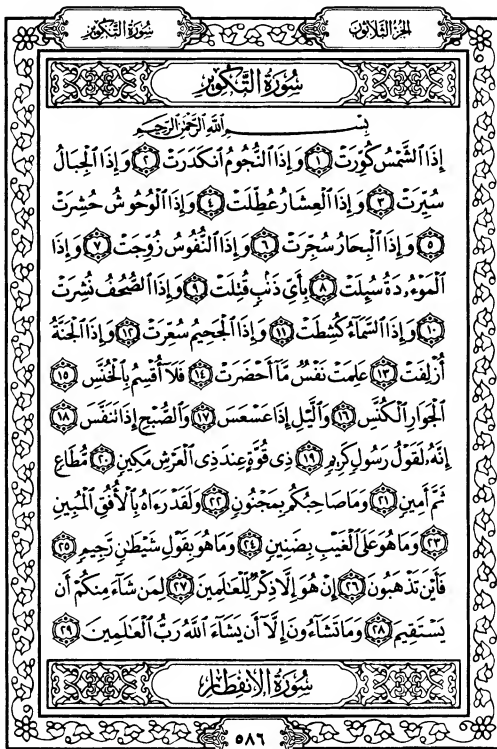 سُورَةُ التَّكْوِيرِ
الجُزْءُ الثَّلَاثُونَ
سُورَةُ التَّكْوِيرِ
بِسْمِ اللَّهِ الرَّحْمَٰنِ الرَّحِيمِ
إِذَا ٱلشَّمْسُ كُوِّرَتْ ١ وَإِذَا ٱلنُّجُومُ ٱنكَدَرَتْ ٢ وَإِذَا ٱلْجِبَالُ
سُيِّرَتْ ٣ وَإِذَا ٱلْعِشَارُ عُطِّلَتْ ٤ وَإِذَا ٱلْوُحُوشُ حُشِرَتْ
٥ وَإِذَا ٱلْبِحَارُ سُجِّرَتْ ٦ وَإِذَا ٱلنُّفُوسُ زُوِّجَتْ ٧ وَإِذَا
ٱلْمَوْءُۥدَةُ سُئِلَتْ ٨ بِأَىِّ ذَنۢبٍ قُتِلَتْ ٩ وَإِذَا ٱلصُّحُفُ نُشِرَتْ
١٠ وَإِذَا ٱلسَّمَآءُ كُشِطَتْ ١١ وَإِذَا ٱلْجَحِيمُ سُعِّرَتْ ١٢ وَإِذَا ٱلْجَنَّةُ
أُزْلِفَتْ ١٣ عَلِمَتْ نَفْسٌ مَّآ أَحْضَرَتْ ١٤ فَلَآ أُقْسِمُ بِٱلْخُنَّسِ ١٥
ٱلْجَوَارِ ٱلْكُنَّسِ ١٦ وَٱلَّيْلِ إِذَا عَسْعَسَ ١٧ وَٱلصُّبْحِ إِذَا تَنَفَّسَ ١٨
إِنَّهُۥ لَقَوْلُ رَسُولٍ كَرِيمٍ ١٩ ذِى قُوَّةٍ عِندَ ذِى ٱلْعَرْشِ مَكِينٍ ٢٠ مُّطَاعٍ
ثَمَّ أَمِينٍ ٢١ وَمَا صَاحِبُكُم بِمَجْنُونٍ ٢٢ وَلَقَدْ رَءَاهُ بِٱلْأُفُقِ ٱلْمُبِينِ
٢٣ وَمَا هُوَ عَلَى ٱلْغَيْبِ بِضَنِينٍ ٢٤ وَمَا هُوَ بِقَوْلِ شَيْطَٰنٍ رَّجِيمٍ ٢٥
فَأَيْنَ تَذْهَبُونَ ٢٦ إِنْ هُوَ إِلَّا ذِكْرٌ لِّلْعَٰلَمِينَ ٢٧ لِمَن شَآءَ مِنكُمْ أَن
يَسْتَقِيمَ ٢٨ وَمَا تَشَآءُونَ إِلَّآ أَن يَشَآءَ ٱللَّهُ رَبُّ ٱلْعَٰلَمِينَ ٢٩
سُورَةُ الِانْفِطَارِ
٥٨٦